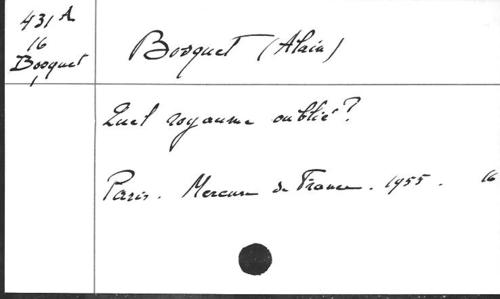 431 A
16
Bosquet
Bosquet (Alain)
Quel royaume oublié?
Paris. Mercure de France. 1955. 16